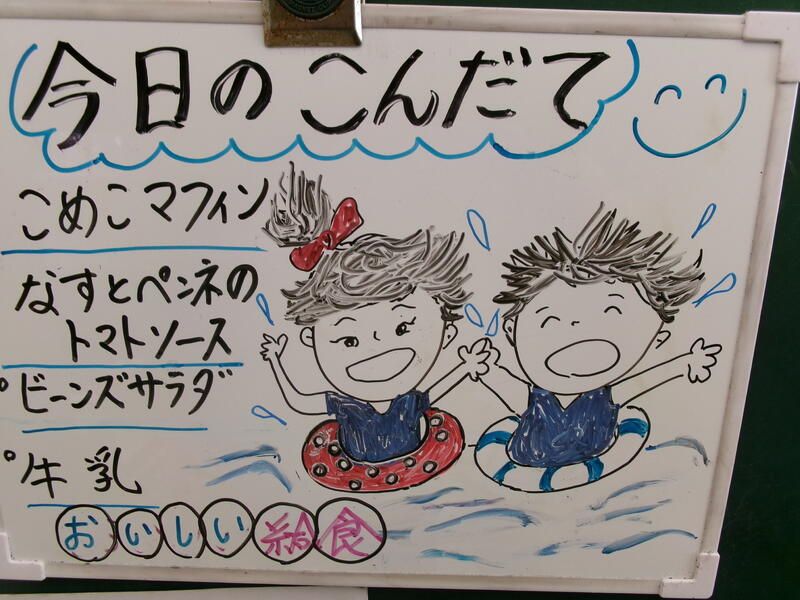 今日のこんだて
こめこマフィン
なすとペンネの
トマトソース
°ビーンズサラダ
°牛乳
おいしい給食